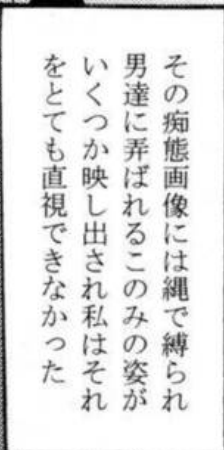 その痴態画像には縄で縛られ
男達に弄ばれるこのみの姿が
いくつか映し出され私はそれ
をとても直視できなかった